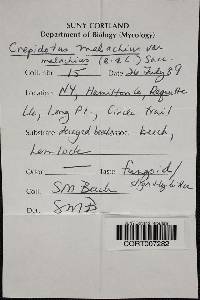 SUNY CORTLAND
Department of Biology (Mycology)
Crepidotus malachius var
malachius (B. & C.) Sacc.
Coll. No. 15 Date 26 July 89
Location NY, Hamilton Co, Raquette
Lk, Long Pt., Circle trail
Substrate decayed beech, beech,
hemlock
Odor — Taste fungoid/
slightly
Coll. SM Beach
Det. SMB
CORT007282